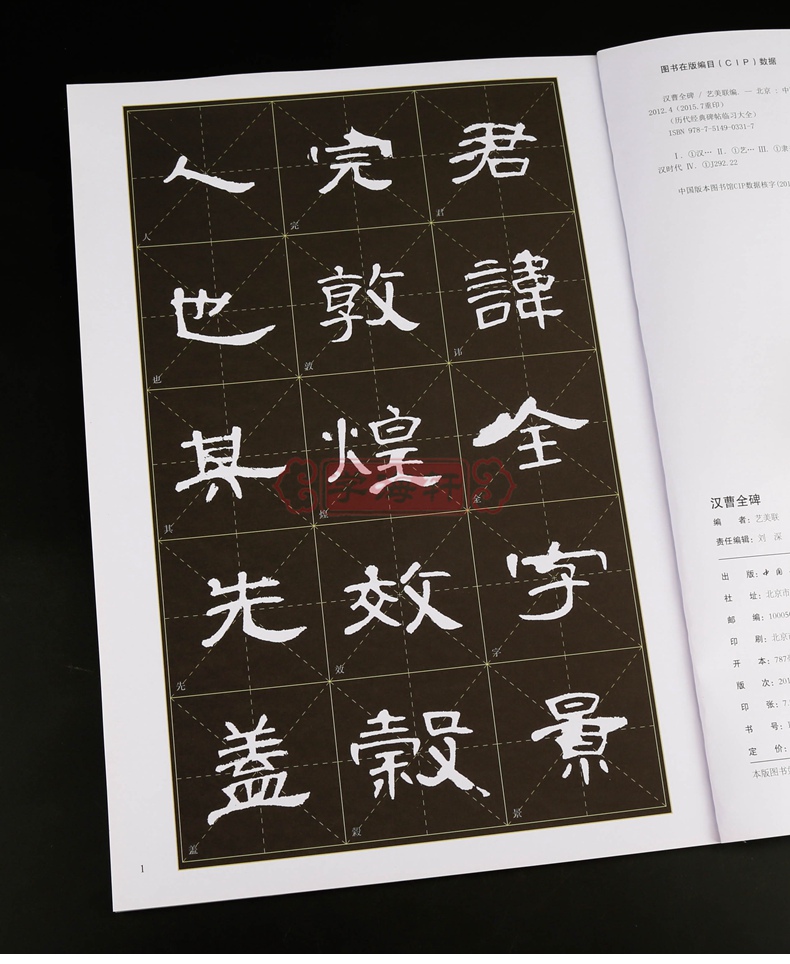 君諱全字景
完敦煌效穀
人也其先蓋
君
讳
全
字
景
完
敦
煌
效
穀
人
也
其
先
蓋
1
字海轩
图书在版编目(CIP)数据
汉曹全碑 / 艺美联编. — 北京 : 中
2012.4(2015.7重印)
(历代经典碑帖临习大全)
ISBN 978-7-5149-0331-7
Ⅰ. ①汉… Ⅱ. ①艺… Ⅲ. ①隶
汉时代 Ⅳ. ①J292.22
中国版本图书馆CIP数据核字(201
汉曹全碑
编 者:艺美联
责任编辑:刘 深
出 版:中国
社 址:北京市
邮 编:10005
印 刷:北京
开 本:787
版 次:201
印 张:7.
书 号:
定 价:
本版图书